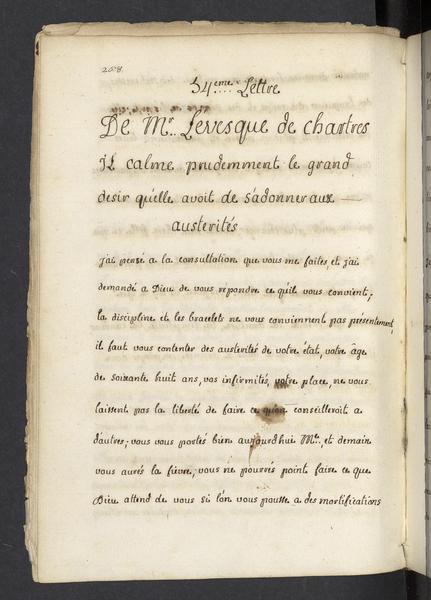 208.
54eme Lettre
De Mr. Levesque de chartres
il calme prudemment le grand
desir qu'elle avoit de s'adonner aux
austerités
j'ai pensé a la consultation que vous me faites, et j'ai
demandé a Dieu de vous repondre ce qu'il vous convient,
la discipline et les bracelets ne vous conviennent pas présentement,
il faut vous contenter des austerités de votre état, votre âge
de soixante huit ans, vos infirmités, votre place, ne vous
laissent pas la liberté de faire ce qu'on conseilleroit a
d'autres; vous vous portés bien aujourd'hui Me, et demain
vous aurés la fiévre, vous ne pourrés point faire ce que
Dieu attend de vous si l'on vous pousse a des mortifications